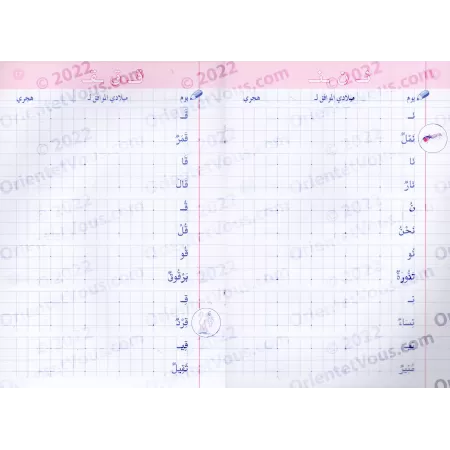 يوم ميلادي الموافق لـ هجري
نَـ
نَمْلٌ
نَا
نَارٌ
نُ
نَحْنُ
نُو
تَنُّورَةٌ
نِـ
نِسَاءٌ
مُنِيرٌ
يوم ميلادي الموافق لـ هجري
قَـ
قَمَرٌ
قَا
قَالَ
قُـ
قُلْ
قُو
بَرْقُوقٌ
قِـ
قِرْدٌ
قِيـ
ثَقِيلٌ
© 2022
OrientetVous.com